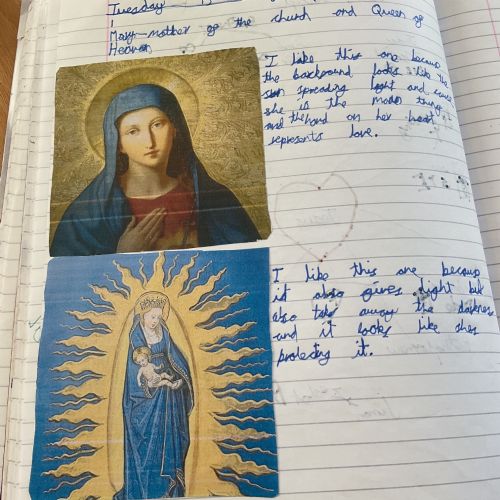 Tuesday
Mary-mother of the church and Queen of
Heaven
I like this one becaus
the background looks like the
sun spreading light and
she is the main thing
and the hand on her heart
represents love.
I like this one becaus
it also gives light but
also take away the darkness
and it looks like shes
protecting it.